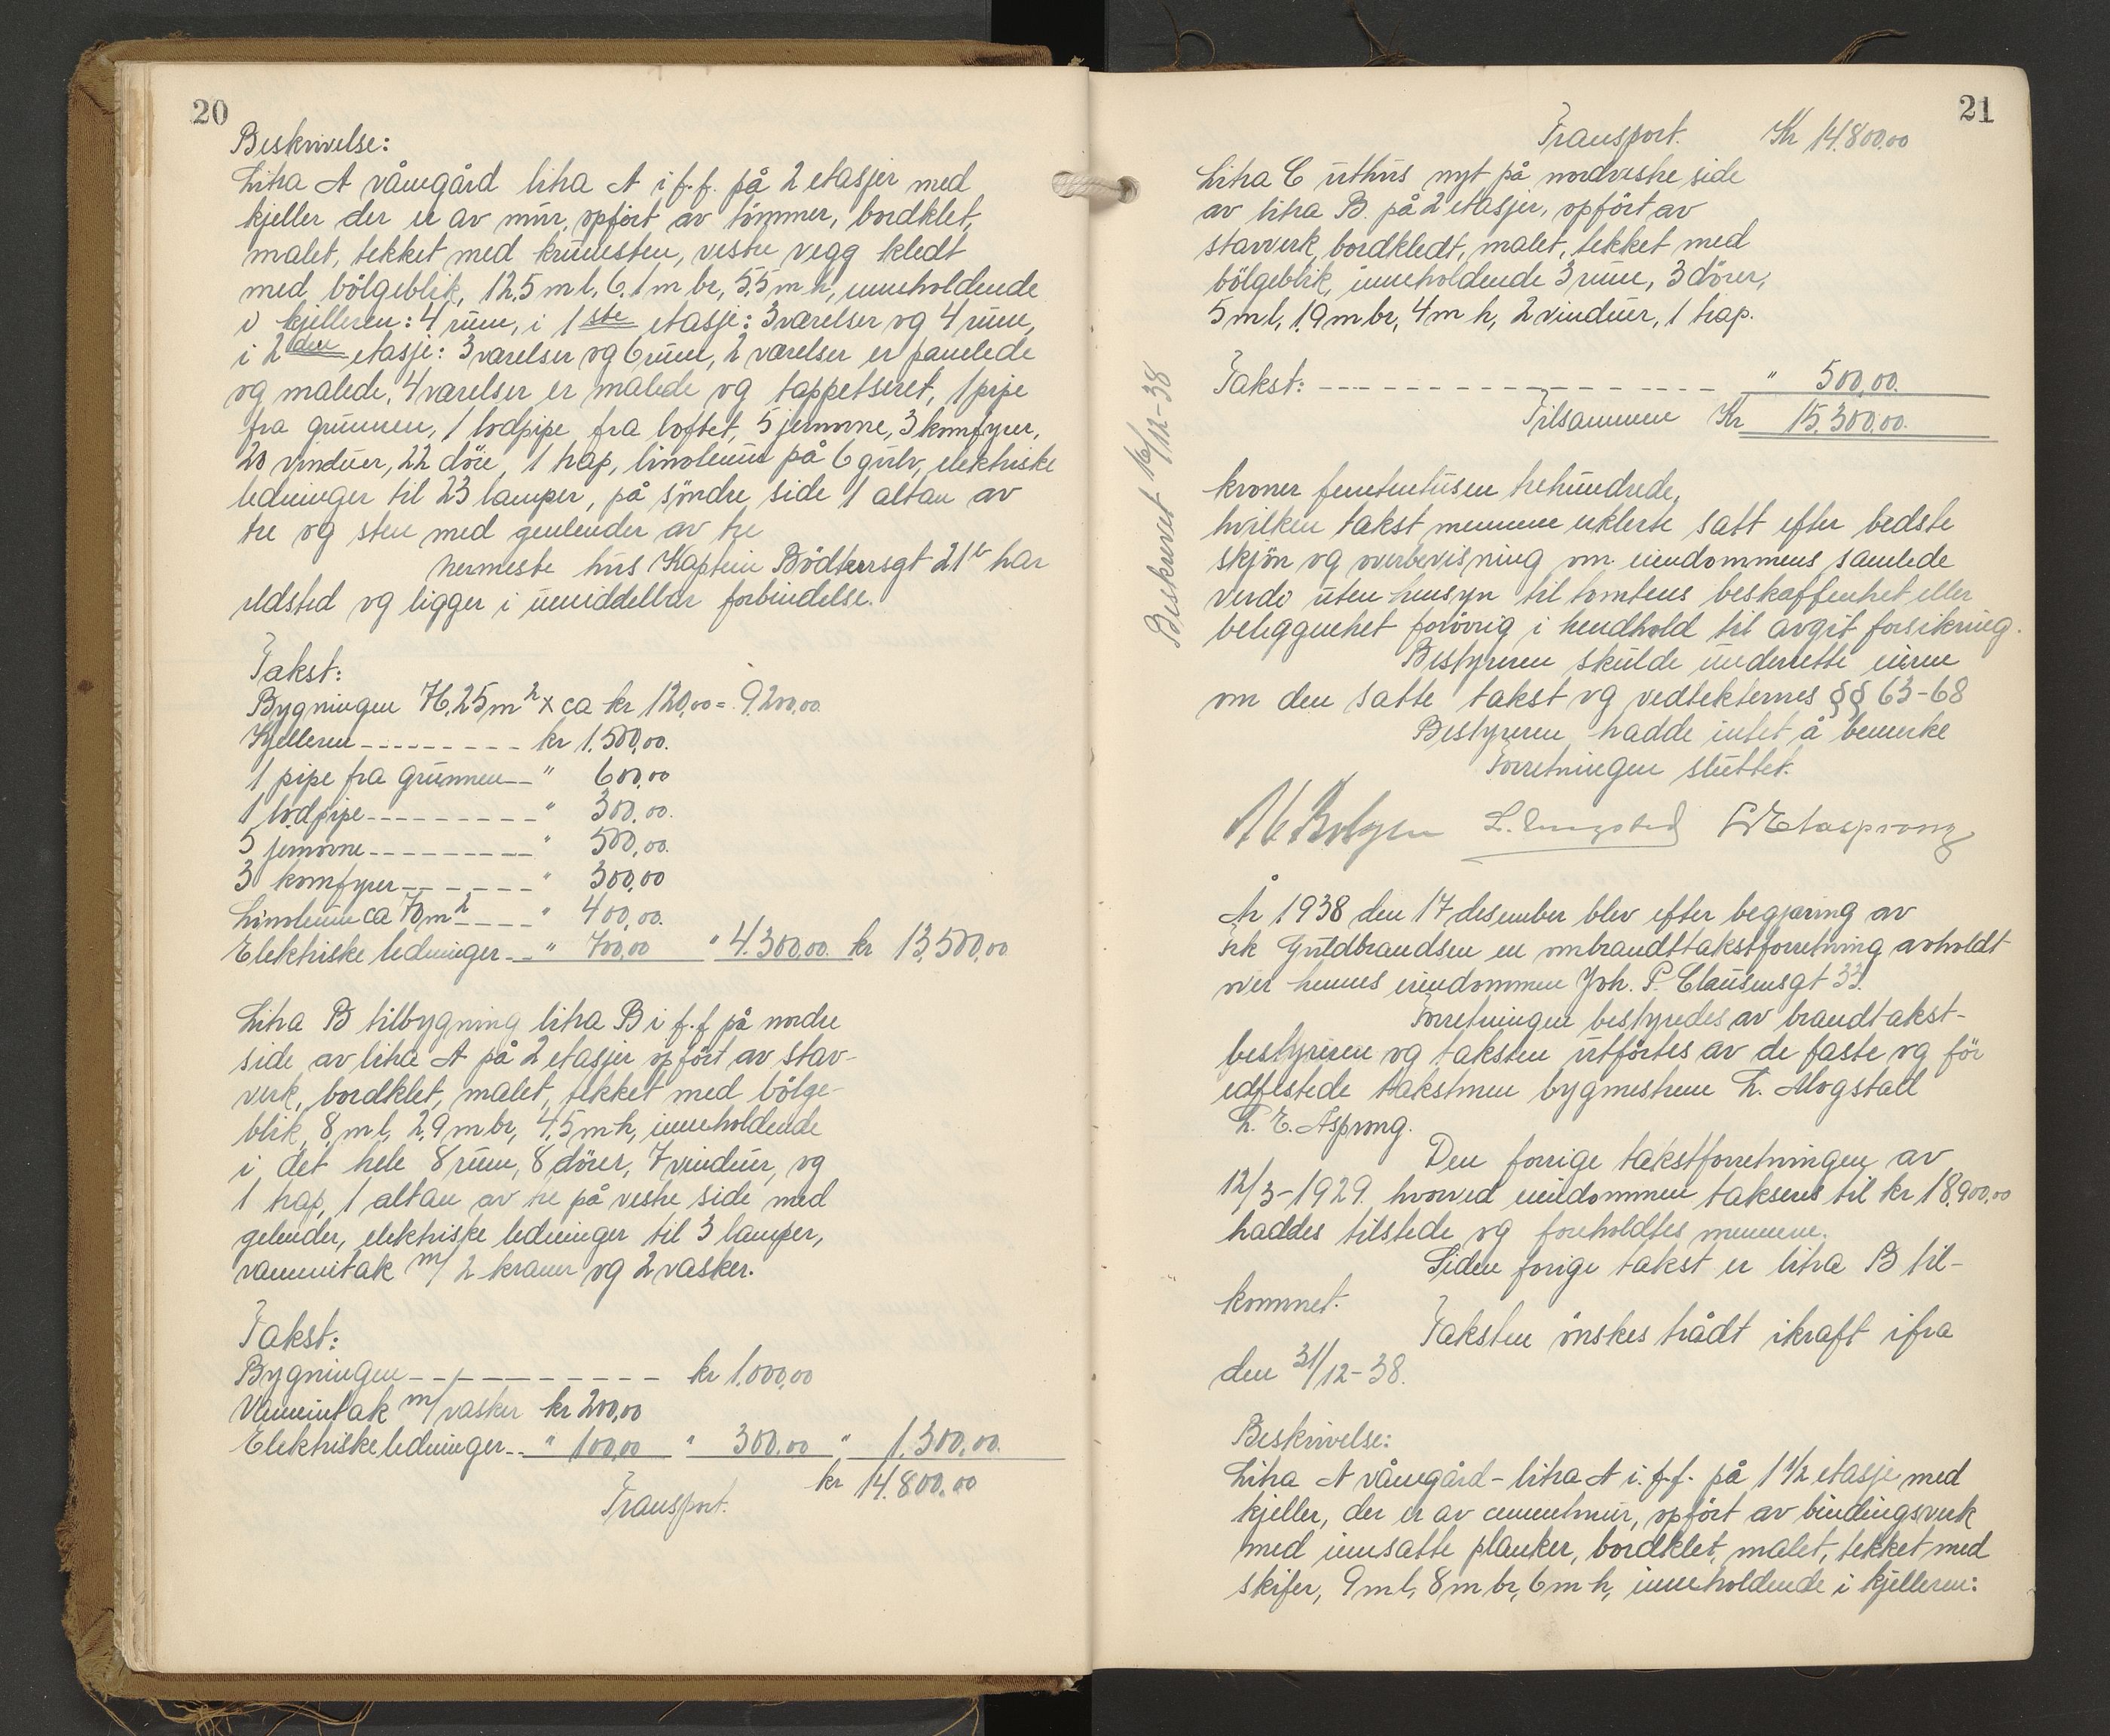 20
Beskrivelse:
Litra A vånegård litra A i f.f. på 2 etasjer med
kjeller der er av mur, opført av tømmer, bordklet,
malet, tekket med krumsten, vestre vegg kledt
med bölgeblik, 12,5 m l, 6,1 m br, 5,5 m h, inneholdende
i kjelleren: 4 rum, i 1ste etasje: 3 værelser og 4 rum,
i 2den etasje: 3 værelser og 6 rum, 2 værelser er panelede
og malede, 4 værelser er malede og tappetseret, 1 pipe
fra grunnen, 1 lodpipe fra loftet, 5 jernovne, 3 komfyrer,
20 vinduer, 22 döre, 1 trap, linoleum på 6 gulv, elektriske
ledninger til 23 lamper, på söndre side 1 altan av
tre og sten med genlender av tre
nermeste hus Kaptein Bödtkersgt 21b har
ildsted og ligger i umiddelbar forbindelse.
Takst:
Bygningen 76,25 m2 x ca kr 120,00 = 9.200,00
Kjelleren --------- kr 1.500,00.
1 pipe fra grunnen -- " 600,00
1 lodpipe --------- " 300,00.
5 jernovne --------- " 500,00.
3 komfyrer ------- " 300,00
Linoleum ca 70 m2 ---- " 400,00.
Elektriske ledninger -- " 700,00 " 4.300,00. kr 13,500,00
Litra B tilbygning litra B i f.f på nordre
side av litra A på 2 etasjer opfört av stav-
verk, bordklet, malet, tekket med bölge-
blik, 8 m l, 2,9 m br, 4,5 m h, inneholdende
i det hele 8 rum, 8 dörer, 7 vinduer, og
1 trap, 1 altan av tre på vestre side med
gelender, elektriske ledninger til 3 lamper,
vanninntak m/ 2 kraner og 2 vasker.
Takst:
Bygningen ------------ kr 1.000,00
Vanninntak m/ vasker kr 200,00
Elektriske ledninger -- " 100,00 " 300,00 " 1.300,00.
kr 14.800,00
Transport.
21
Transport. Kr 14.800,00
Litra C uthus nyt på nordvestre side
av litra B. på 2 etasjer, opfört av
stavverk, bordkledt, malet, tekket med
bölgeblik, inneholdende 3 rum, 3 dörer,
5 m l, 1,9 m br, 4 m h, 2 vinduer, 1 trap.
Takst: ------------------ " 500,00.
Tilsammen Kr 15.300,00.
Beskrevet 16/12-38
kroner femtentusen trehundrede,
hvilken takst mennene erklerte satt efter bedste
skjön og overbevisning om eiendommens samlede
verdi uten hensyn til tomtens beskaffenhet eller
beliggenhet forövrig i hendhold til avgit forsikring.
Bestyreren skulde underrette eieren
om den satte takst og vedtekternes §§ 63-68
Bestyreren hadde intet å bemerke
Forretningen sluttet.
L. E. Asprong
År 1938 den 17 desember blev efter begjæring av
frk Guldbrandsen en ombrandttakstforretning avholdt
over hennes eiendommen Joh. P. Clausensgt 33.
Forretningen bestyredes av brandtakst-
bestyreren og taksten utförtes av de faste og för
edfestede takstmen bygmestrene L. Mogstad
L. E. Asprong.
Den forrige takstforretningen av
12/3-1929. hvorved eiendommen takseres til kr 18.900,00
haddes tilstede og foreholdtes mennene.
Siden forige takst er litra B til-
kommet.
Taksten önskes trådt ikraft ifra
den 31/12-38.
Beskrivelse:
Litra A våneğård - litra A i. f.f. på 1 1/2 etasje med
kjeller, der er av cementmur, opfört av bindingsverk
med innsatte planker, bordklet, malet, tekket med
skifer, 9 m l, 8 m br, 6 m h, inneholdende i kjelleren: